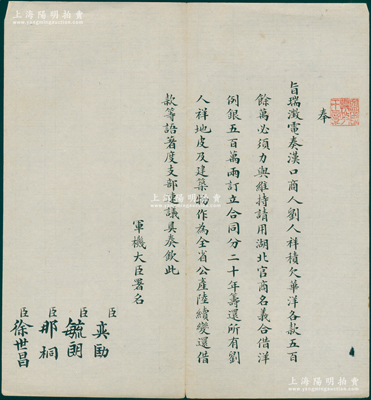 上海陽明拍賣
奉
旨瑞澂電奏漢口商人劉人祥積欠華洋各款五百
餘萬必須力與維持請用湖北官商名義合借洋
例銀五百萬兩訂立合同分二十年籌還所有劉
人祥地皮及建築物作為全省公產陸續變還借
款等語著度支部速議具奏欽此
軍機大臣署名
臣奕劻
臣毓朗
臣那桐
臣徐世昌